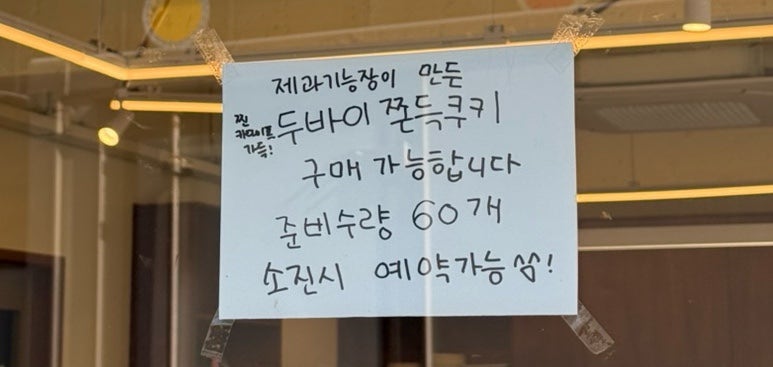 제과기능장이 만둔
찐
카다이프
가득!
두바이 쫀득쿠키
구매 가능합니다
준비수량 60개
소진시 예약가능쓰!